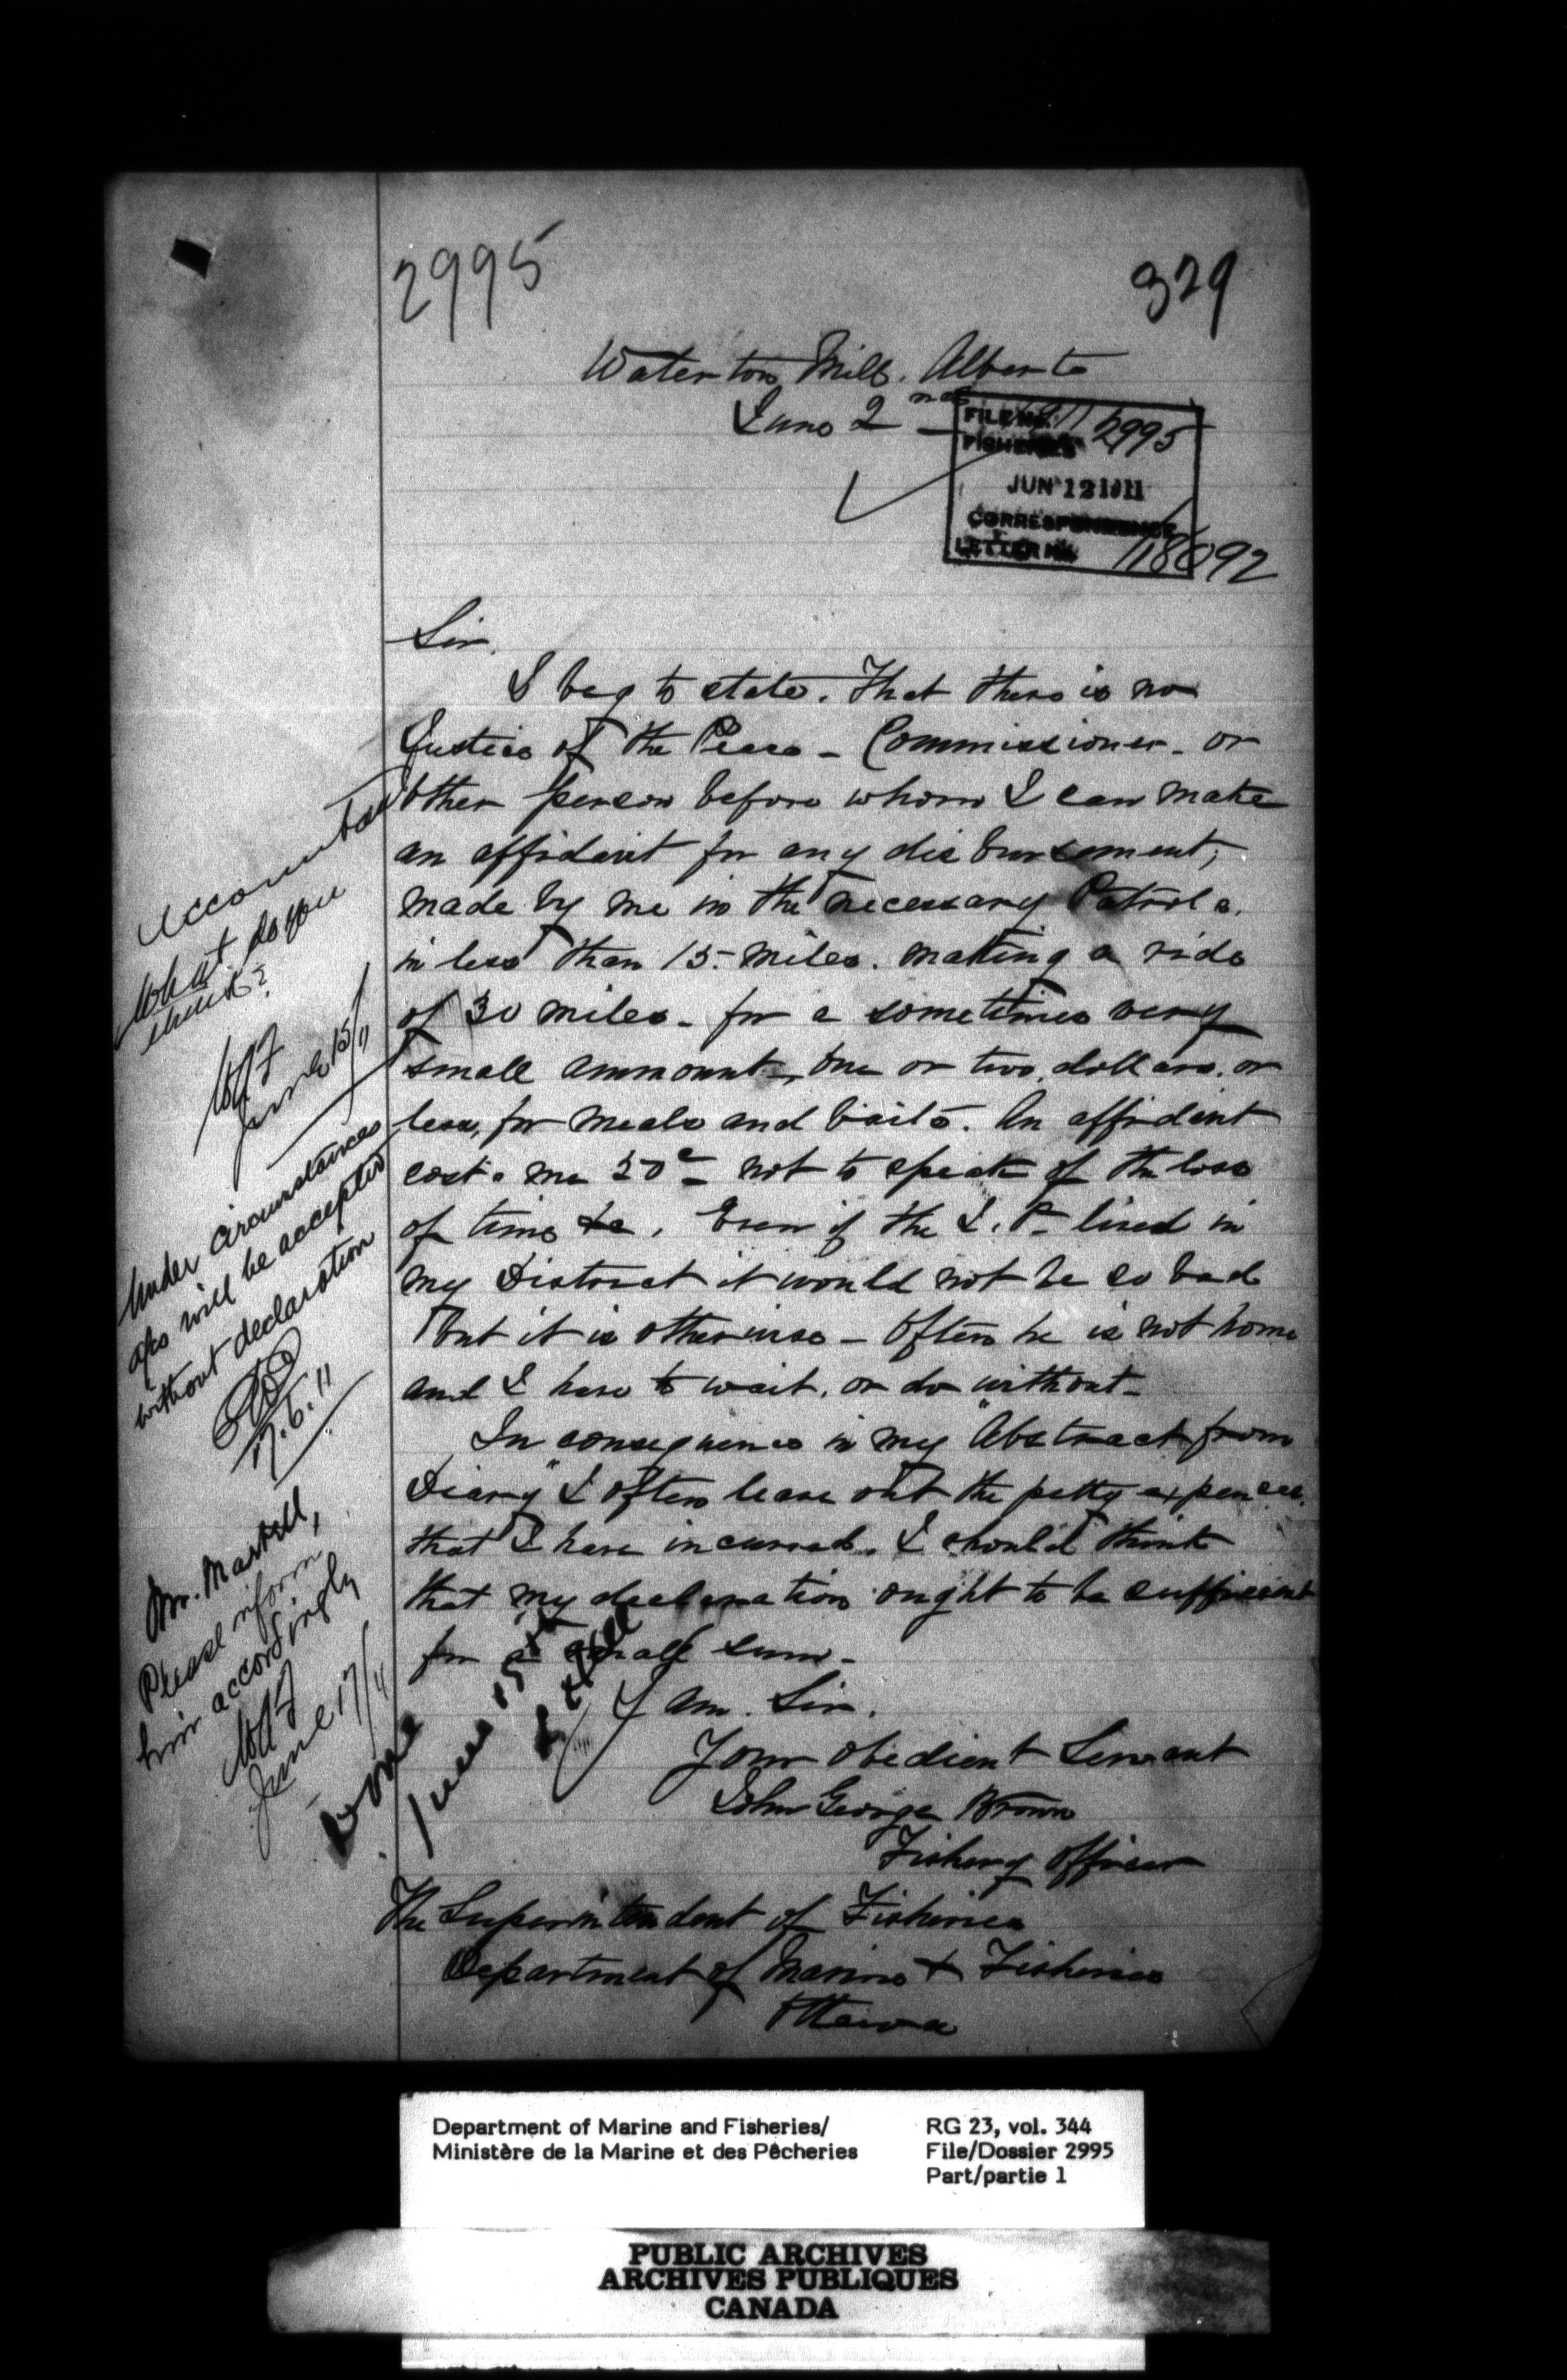 2995
329
Waterton Mills. Alberta
June 2nd 1911
FILE No. 2995
FISHERIES
JUN 12 1911
CORRESPONDENCE
LETTER No. 118092
Sir.
I beg to state. That there is no
Justice of the Peace - Commissioner - or
other person before whom I can make
an affidavit for any disbursement,
made by me in the necessary Patrols.
in less than 15. miles. making a ride
of 30 miles - for a sometimes very
small ammount - one or two dollars. or
less, for meals and baits. An affidavit
costs me 50c - not to speak of the loss
of time &c. Even if the J. P. lived in
my District it would not be so bad
but it is otherwise - Often he is not home
and I have to wait. or do without -
In consequence in my "Abstract from
Diary" I often leave out the petty expenses.
that I have incurred. I should think
that my declaration ought to be sufficient
for a small sum -
I am. Sir.
Your obedient Servant
John George Brown
Fishery Officer
The Superintendent of Fisheries
Department of Marine & Fisheries
Ottawa
Accountant
What do you
think?
June 15/11
Under circumstances
a/cs will be accepted
without declaration
17.6.11
Mr. Martell,
Please inform
him accordingly
June 17/11
Done
June
Department of Marine and Fisheries/
Ministère de la Marine et des Pêcheries
RG 23, vol. 344
File/Dossier 2995
Part/partie 1
PUBLIC ARCHIVES
ARCHIVES PUBLIQUES
CANADA